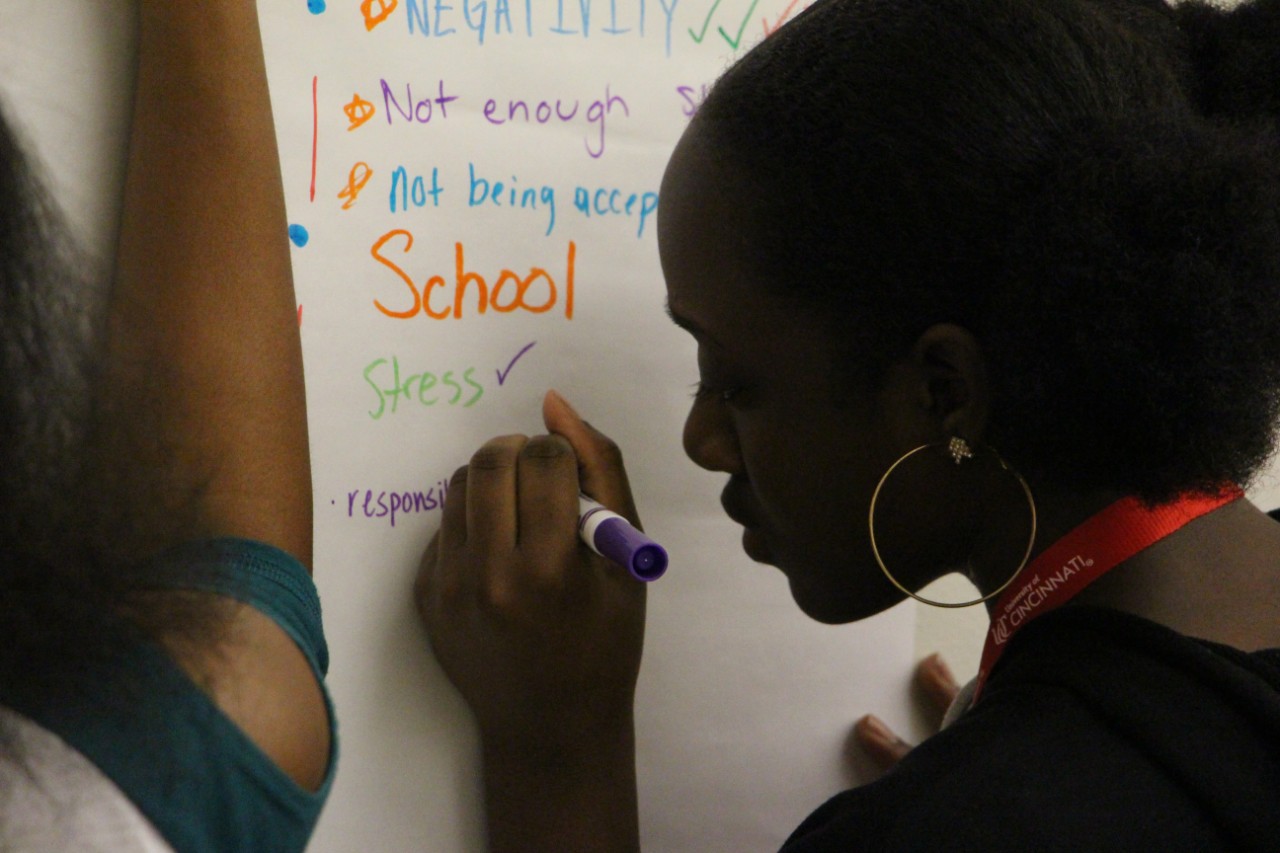 NEGATIVITY ✓✓✓
Not enough
not being
School
Stress ✓
· responsi
University of
CINCINNATI